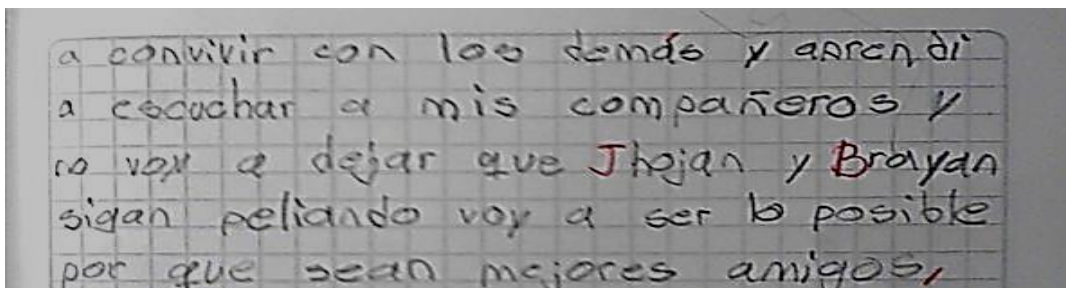 a convivir con los demás y aprendi
a escuchar a mis compañeros y
no voy a dejar que Jhojan y Brayan
sigan peliando voy a ser lo posible
por que sean mejores amigos,